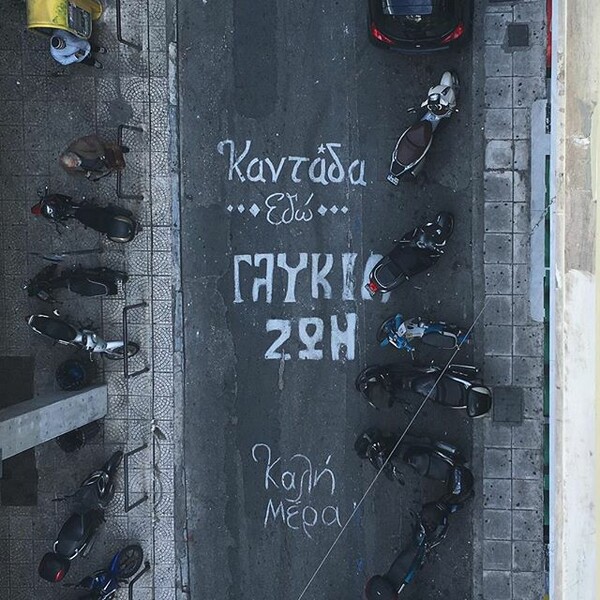 Καντάδα
Εδώ
ΓΛΥΚΙΑ
ΖΩΗ
Καλή
μέρα!